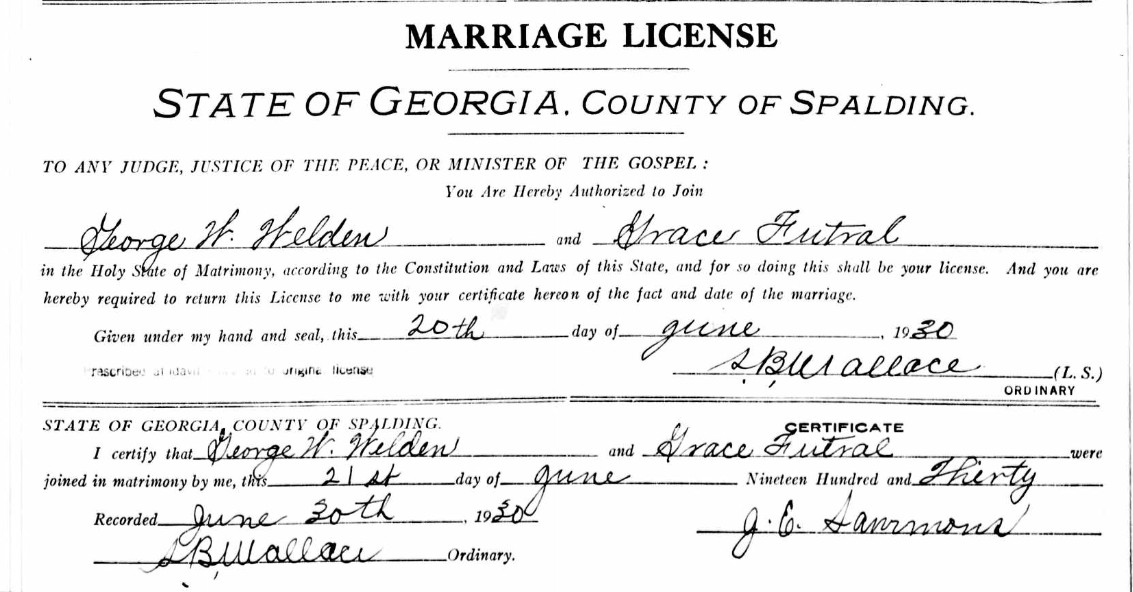 MARRIAGE LICENSE
STATE OF GEORGIA, COUNTY OF SPALDING.
TO ANY JUDGE, JUSTICE OF THE PEACE, OR MINISTER OF THE GOSPEL:
You Are Hereby Authorized to Join
George W. Welden and Grace Futral
in the Holy State of Matrimony, according to the Constitution and Laws of this State, and for so doing this shall be your license. And you are
hereby required to return this License to me with your certificate hereon of the fact and date of the marriage.
Given under my hand and seal, this 20th day of June, 1930
original license S.B. Wallace (L. S.)
ORDINARY
STATE OF GEORGIA, COUNTY OF SPALDING. CERTIFICATE
I certify that George W. Welden and Grace Futral were
joined in matrimony by me, this 21st day of June Nineteen Hundred and Thirty
Recorded June 30th, 1930 J. E. Sammons
S.B. Wallace Ordinary.